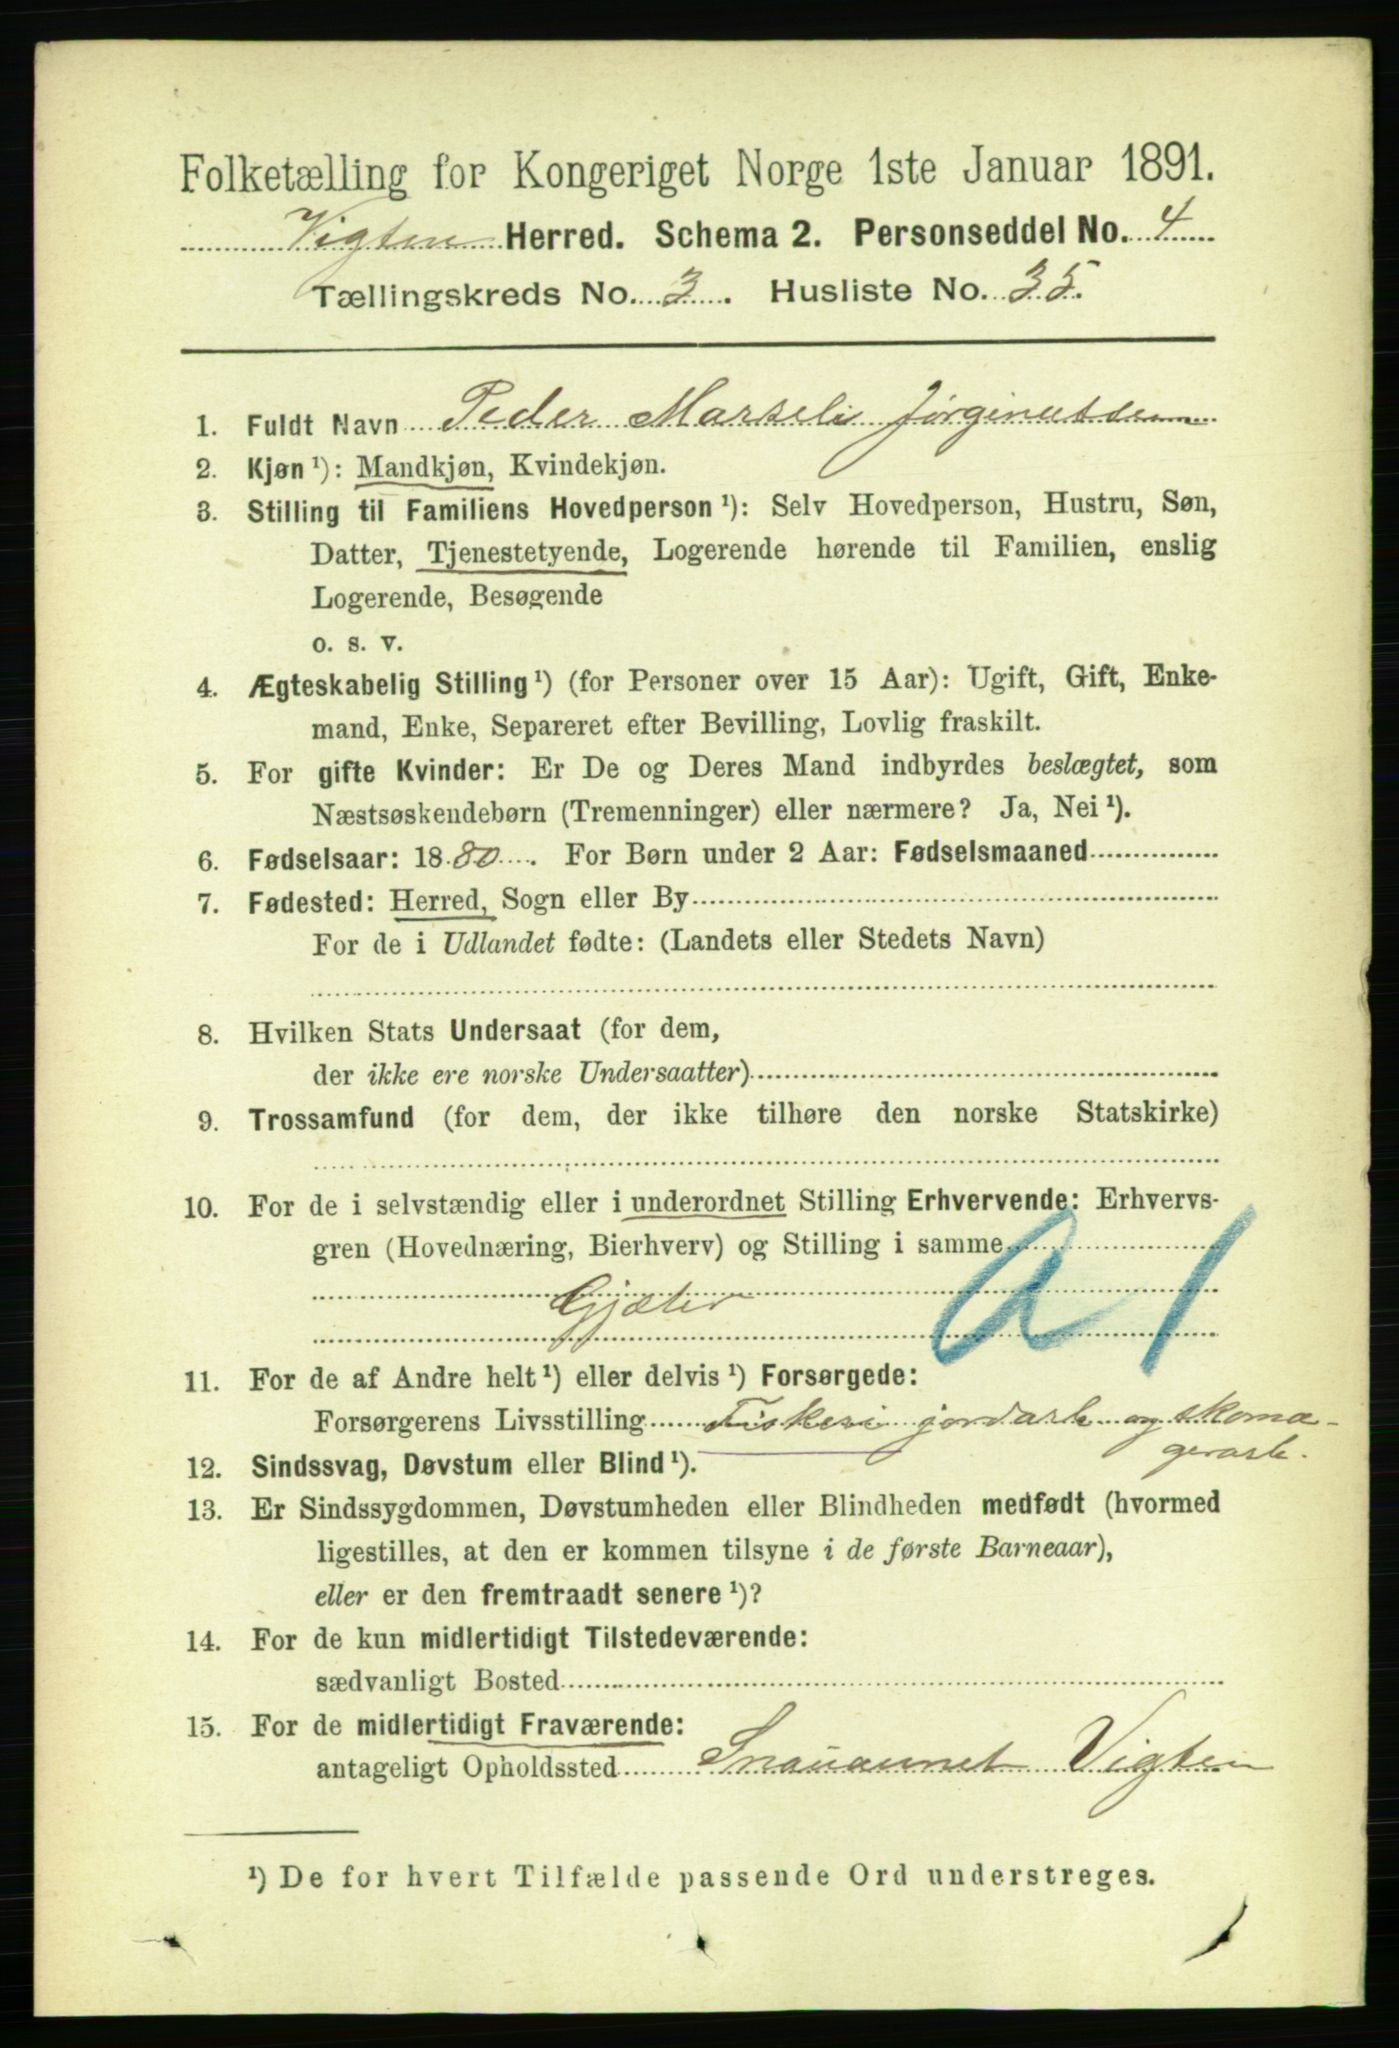 Folketælling for Kongeriget Norge 1ste Januar 1891.
Vigten Herred. Schema 2. Personseddel No. 4
Tællingskreds No. 3. Husliste No. 35.
1. Fuldt Navn Peder Marseli Jørginussen
2. Kjøn ¹): Mandkjøn, Kvindekjøn.
3. Stilling til Familiens Hovedperson ¹): Selv Hovedperson, Hustru, Søn,
Datter, Tjenestetyende, Logerende hørende til Familien, enslig
Logerende, Besøgende
o. s. v.
4. Ægteskabelig Stilling ¹) (for Personer over 15 Aar): Ugift, Gift, Enke-
mand, Enke, Separeret efter Bevilling, Lovlig fraskilt.
5. For gifte Kvinder: Er De og Deres Mand indbyrdes beslægtet, som
Næstsøskendebørn (Tremenninger) eller nærmere? Ja, Nei ¹).
6. Fødselsaar: 1880. For Børn under 2 Aar: Fødselsmaaned
7. Fødested: Herred, Sogn eller By
For de i Udlandet fødte: (Landets eller Stedets Navn)
8. Hvilken Stats Undersaat (for dem,
der ikke ere norske Undersaatter)
9. Trossamfund (for dem, der ikke tilhøre den norske Statskirke)
10. For de i selvstændig eller i underordnet Stilling Erhvervende: Erhvervs-
gren (Hovednæring, Bierhverv) og Stilling i samme
Gjæter
a 1
11. For de af Andre helt ¹) eller delvis ¹) Forsørgede:
Forsørgerens Livsstilling Fiskeri jordarb og skoma-
gerarb.
12. Sindssvag, Døvstum eller Blind ¹).
13. Er Sindssygdommen, Døvstumheden eller Blindheden medfødt (hvormed
ligestilles, at den er kommen tilsyne i de første Barneaar),
eller er den fremtraadt senere ¹)?
14. For de kun midlertidigt Tilstedeværende:
sædvanligt Bosted
15. For de midlertidigt Fraværende:
antageligt Opholdssted Snauaunet Vigten
¹) De for hvert Tilfælde passende Ord understreges.